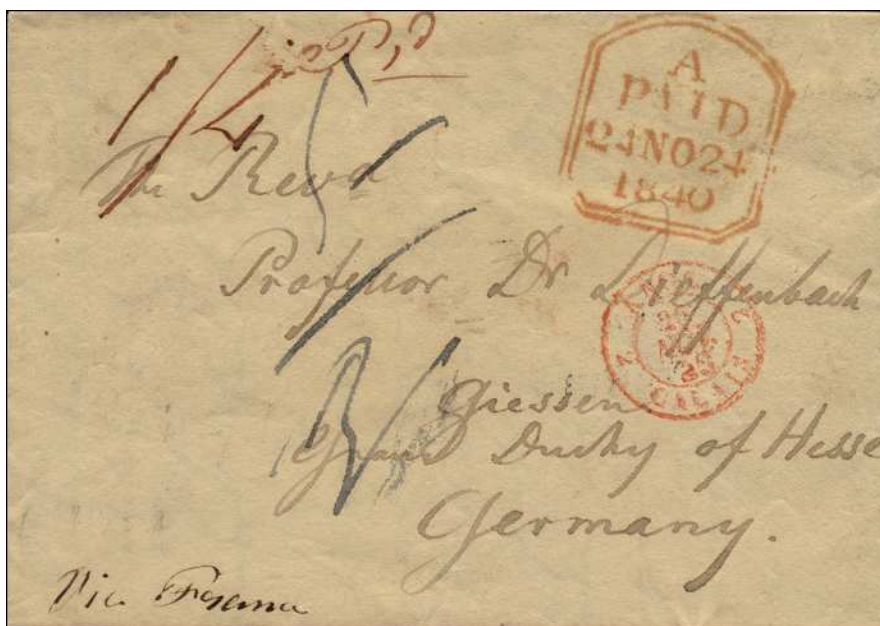 1/4 Pd
A
PAID
24NO24
1840
The Revd
Professor Dr Dieffenbach
2 CALAIS 2
Giessen
Grand Duchy of Hesse
Germany.
Via